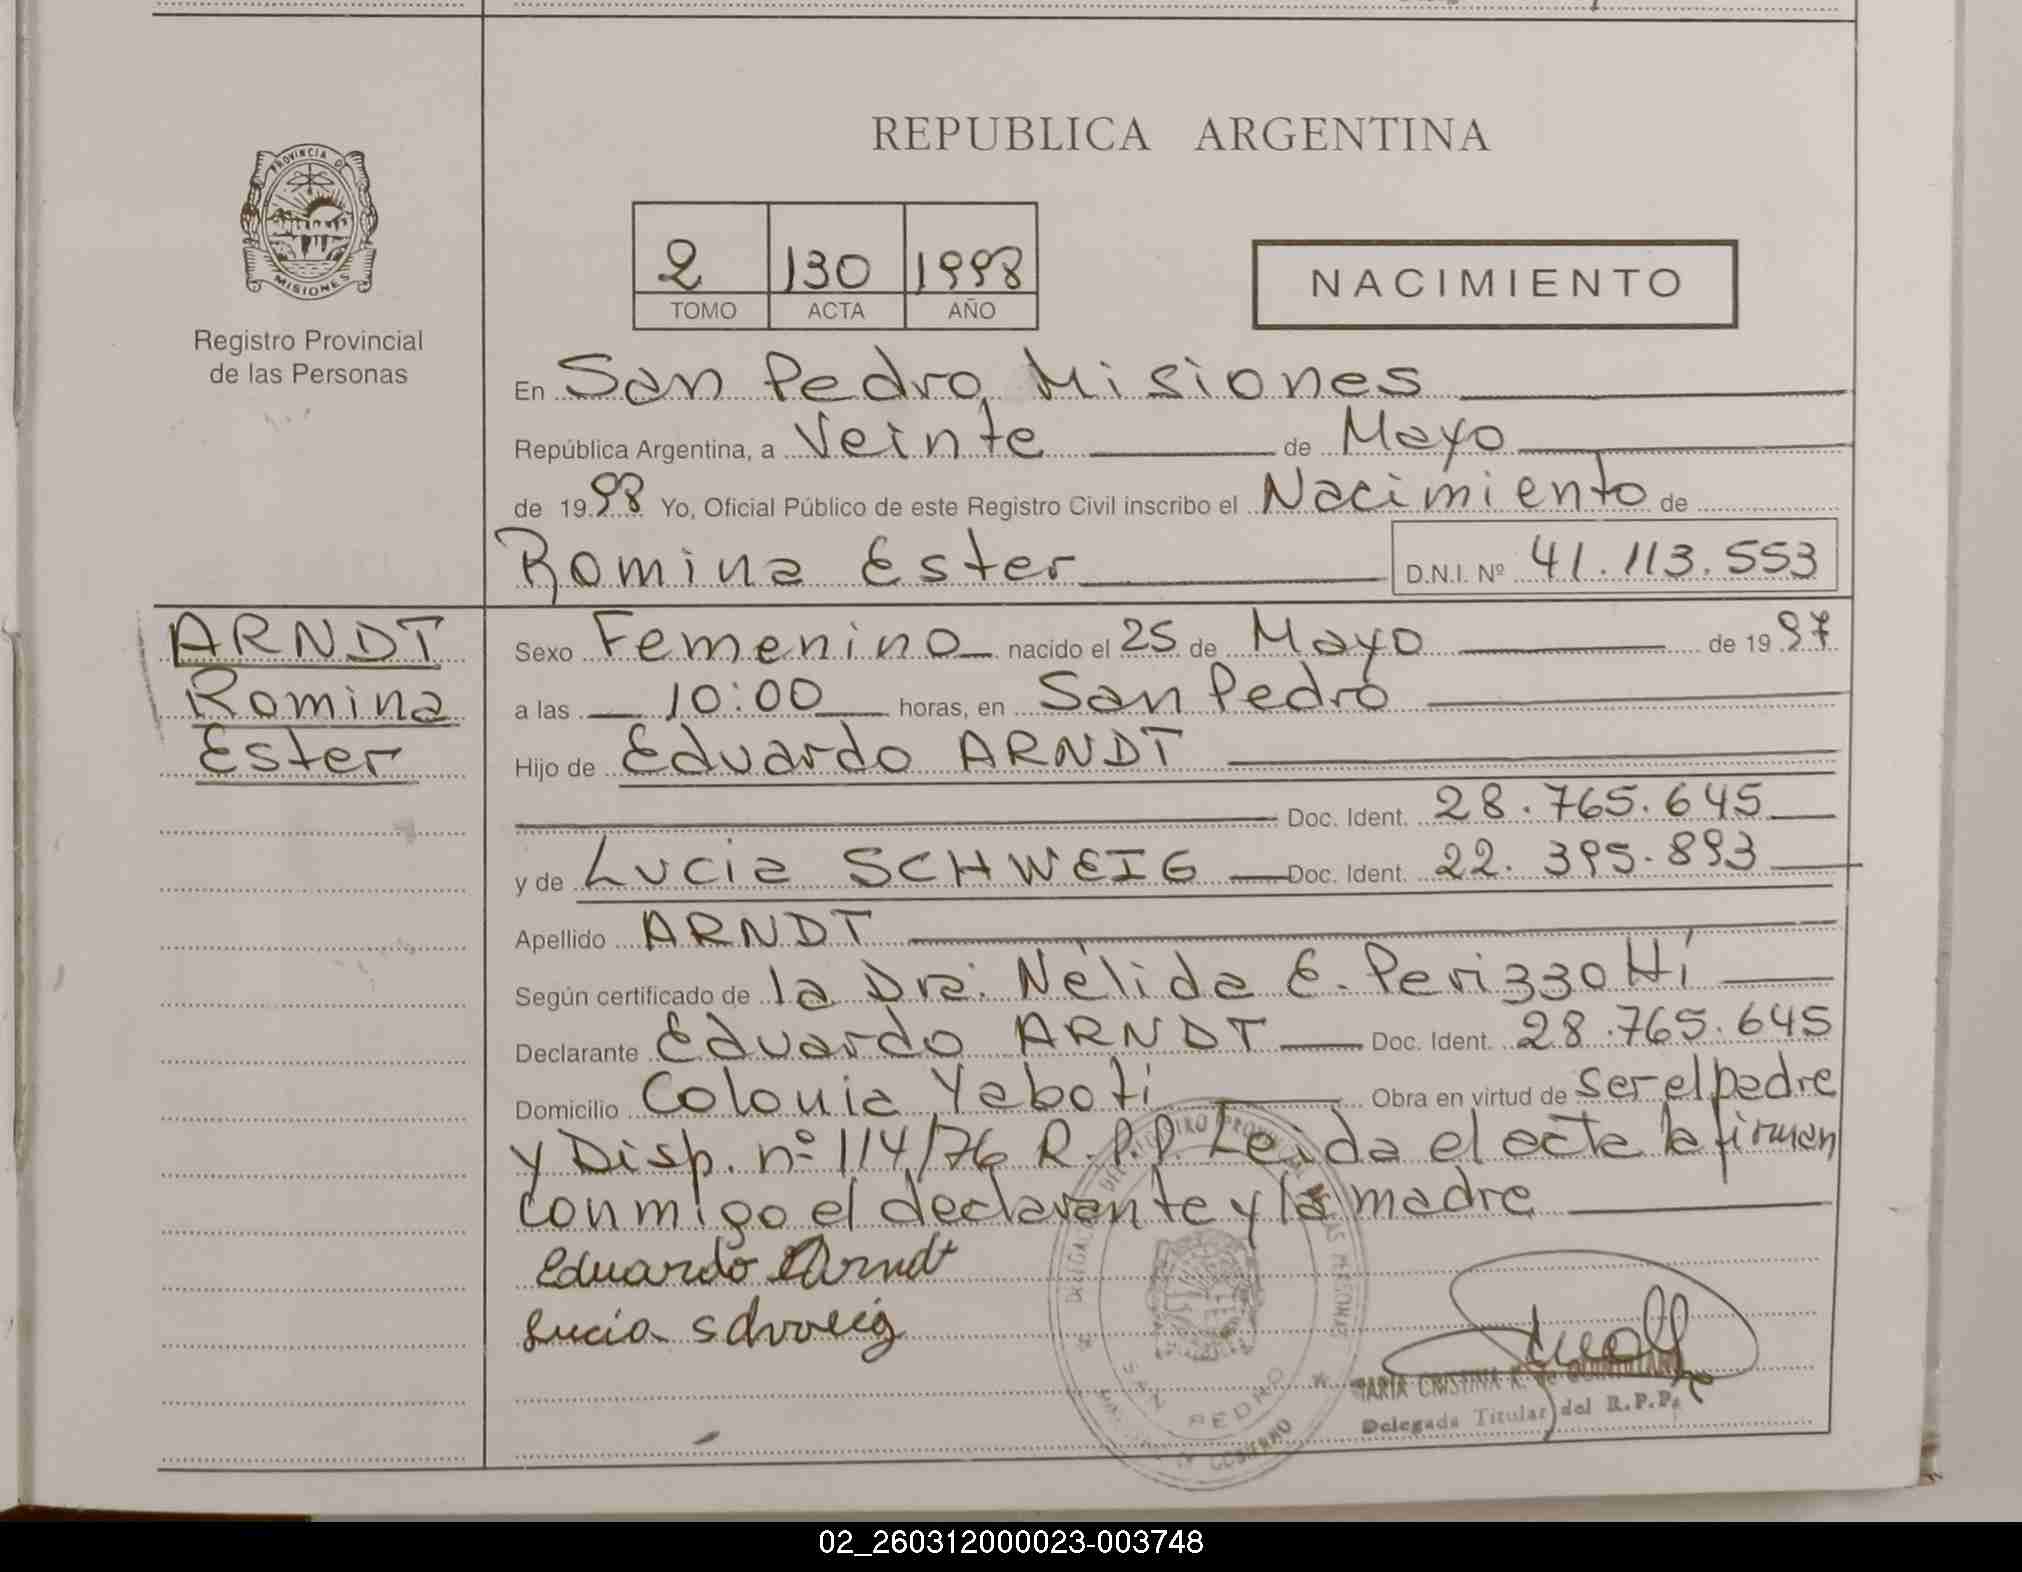 REPUBLICA ARGENTINA
PROVINCIA D
MISIONES
Registro Provincial
de las Personas
2 130 1998
TOMO ACTA AÑO
NACIMIENTO
En San Pedro, Misiones
República Argentina, a Veinte de Mayo
de 1998 Yo, Oficial Público de este Registro Civil inscribo el Nacimiento de
Romina Ester D.N.I. Nº 41.113.553
ARNDT
Romina
Ester
Sexo Femenino nacido el 25 de Mayo de 1997
a las 10:00 horas, en San Pedro
Hijo de Eduardo ARNDT
Doc. Ident. 28.765.645
y de Lucia SCHWEIG Doc. Ident. 22.395.893
Apellido ARNDT
Según certificado de la Dra. Nélida E. Perizzotti
Declarante Eduardo ARNDT Doc. Ident. 28.765.645
Domicilio Colonia Yaboti Obra en virtud de ser el padre
y Disp. nº 114/76 R.P.P. Leida el acta la firman
conmigo el declarante y la madre
Eduardo Arndt
Lucia Schweig
SAN PEDRO
MARIA CRISTINA K. de
Delegada Titular del R.P.P.
02_260312000023-003748